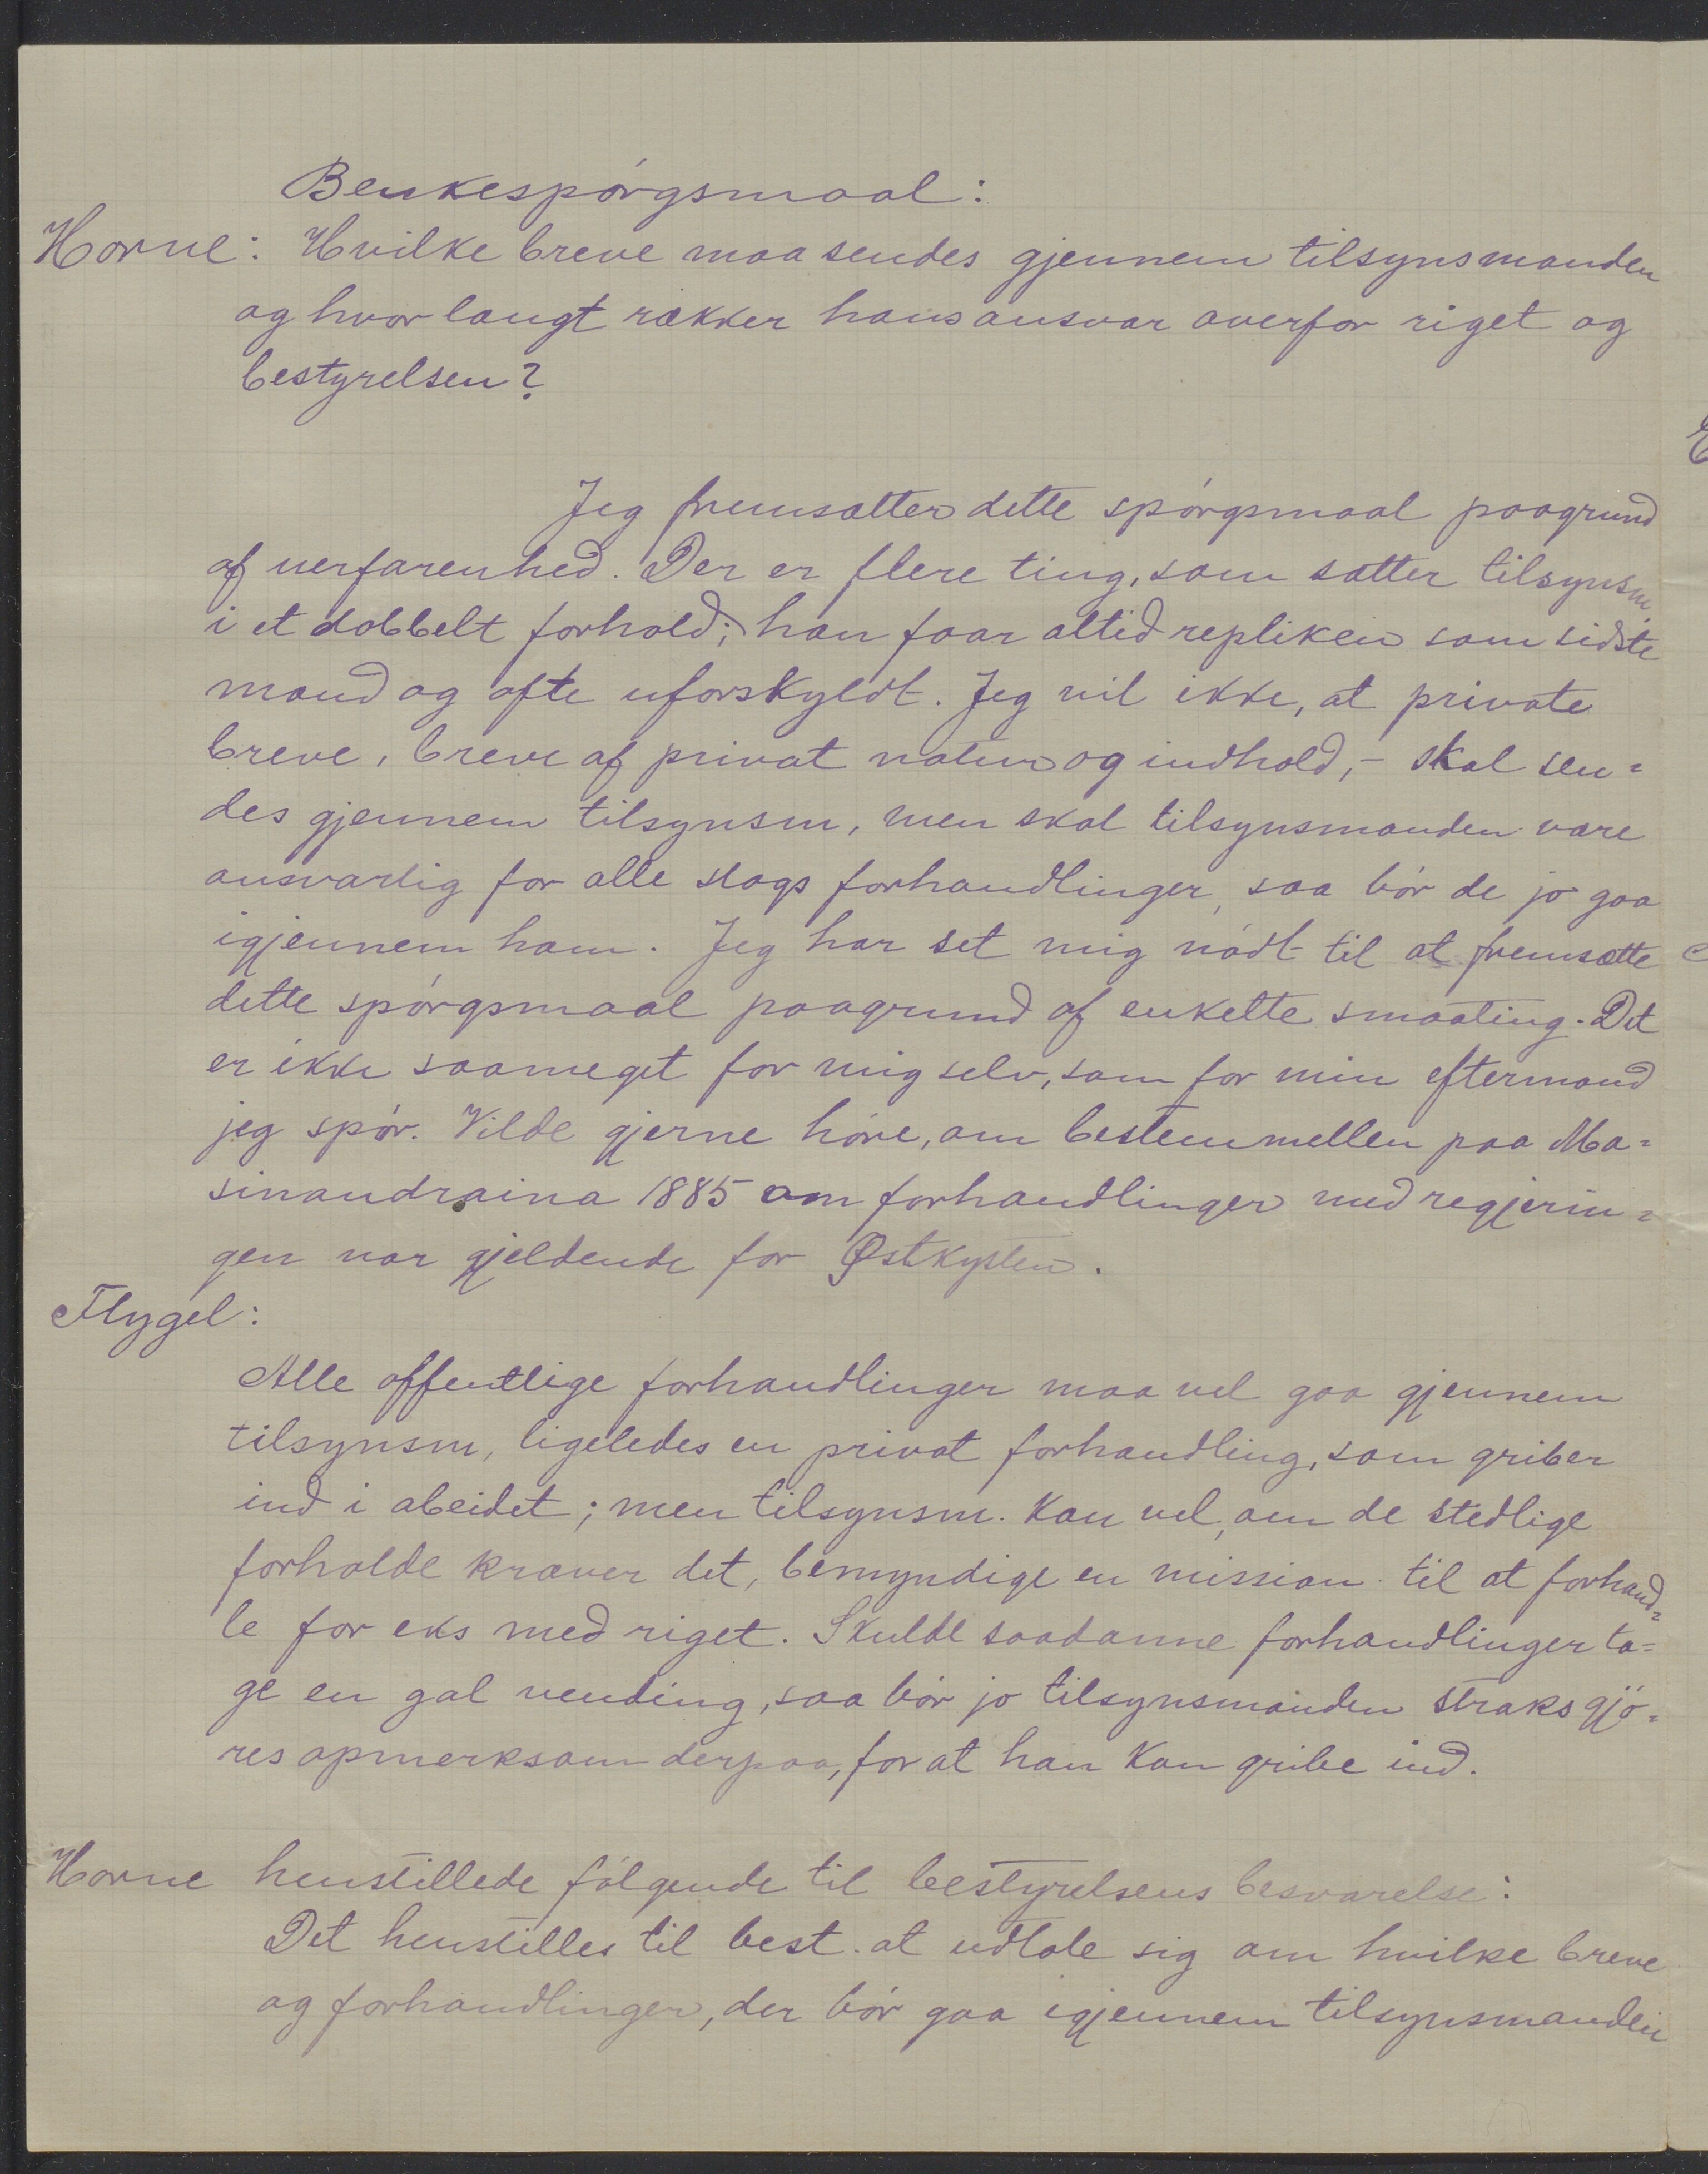 Benkespórgsmaal:
Horne: Hvilke breve maa sendes gjennem tilsynsmanden
og hvor langt rækker hans ansvar overfor riget og
bestyrelsen?
Jeg fremsætter dette spórgsmaal paagrund
af uerfarenhed. Der er flere ting, som sætter tilsynsm
i et dobbelt forhold; han faar altid repliken som sidste
mand og ofte uforskyldt. Jeg vil ikke, at private
breve, breve af privat natur og indhold, – skal sen=
des gjennem tilsynsm, men skal tilsynsmanden være
ansvarlig for alle slags forhandlinger, saa bór de jo gaa
igjennem ham. Jeg har set mig nódt til at fremsætte
dette spórgsmaal paagrund af enkelte smaating. Det
er ikke saameget for mig selv, som for min eftermand
jeg spór. Vilde gjerne hóre, om bestemmellen paa Ma=
sinandraina 1885 om forhandlinger med regjerin=
gen var gjeldende for Østkysten.
Flygel:
Alle offentlige forhandlinger maa vel gaa gjennem
tilsynsm, ligeledes en privat forhandling, som griber
ind i abeidet; men tilsynsm. kan vel, om de stedlige
forholde kræver det, bemyndige en mission. til at forhand=
le for eks med riget. Skulde saadanne forhandlinger ta=
ge en gal vending, saa bór jo tilsynsmanden straks gjó=
res opmerksom derpaa, for at han kan gribe ind.
Horne henstillede fólgende til bestyrelsens besvarelse:
Det henstilles til best. at udtale sig om hvilke breve
og forhandlinger, der bór gaa igjennem tilsynsmanden